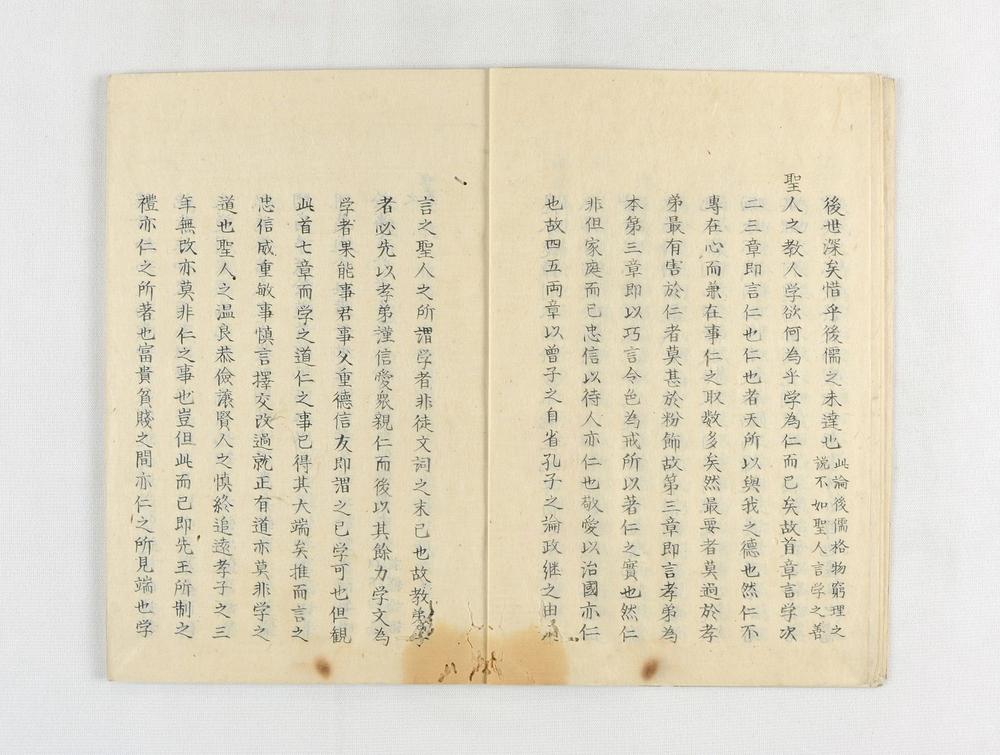 後世深矣惜乎後儒之未達也
此論後儒格物窮理之
說不如聖人言学之善
聖人之教人学欲何為乎学為仁而已矣故首章言学次
二三章即言仁也仁也者天所以與我之德也然仁不
專在心而兼在事仁之取数多矣然最要者莫過於孝
弟最有害於仁者莫甚於粉飾故第三章即言孝弟為
本第三章即以巧言令色為戒所以著仁之實也然仁
非但家庭而已忠信以待人亦仁也敬愛以治國亦仁
也故四五両章以曾子之自省孔子之論政継之由
言之聖人之所謂学者非徒文詞之末已也故教弟子
者必先以孝弟謹信愛衆親仁而後以其餘力学文為
学者果能事君事父重德信友即謂之已学可也但観
此首七章而学之道仁之事已得其大端矣推而言之
忠信威重敏事慎言擇交改過就正有道亦莫非学之
道也聖人之温良恭儉讓賢人之慎終追遠孝子之三
年無改亦莫非仁之事也豈但此而已即先王所制之
禮亦仁之所著也富貴貧賤之間亦仁之所見端也学